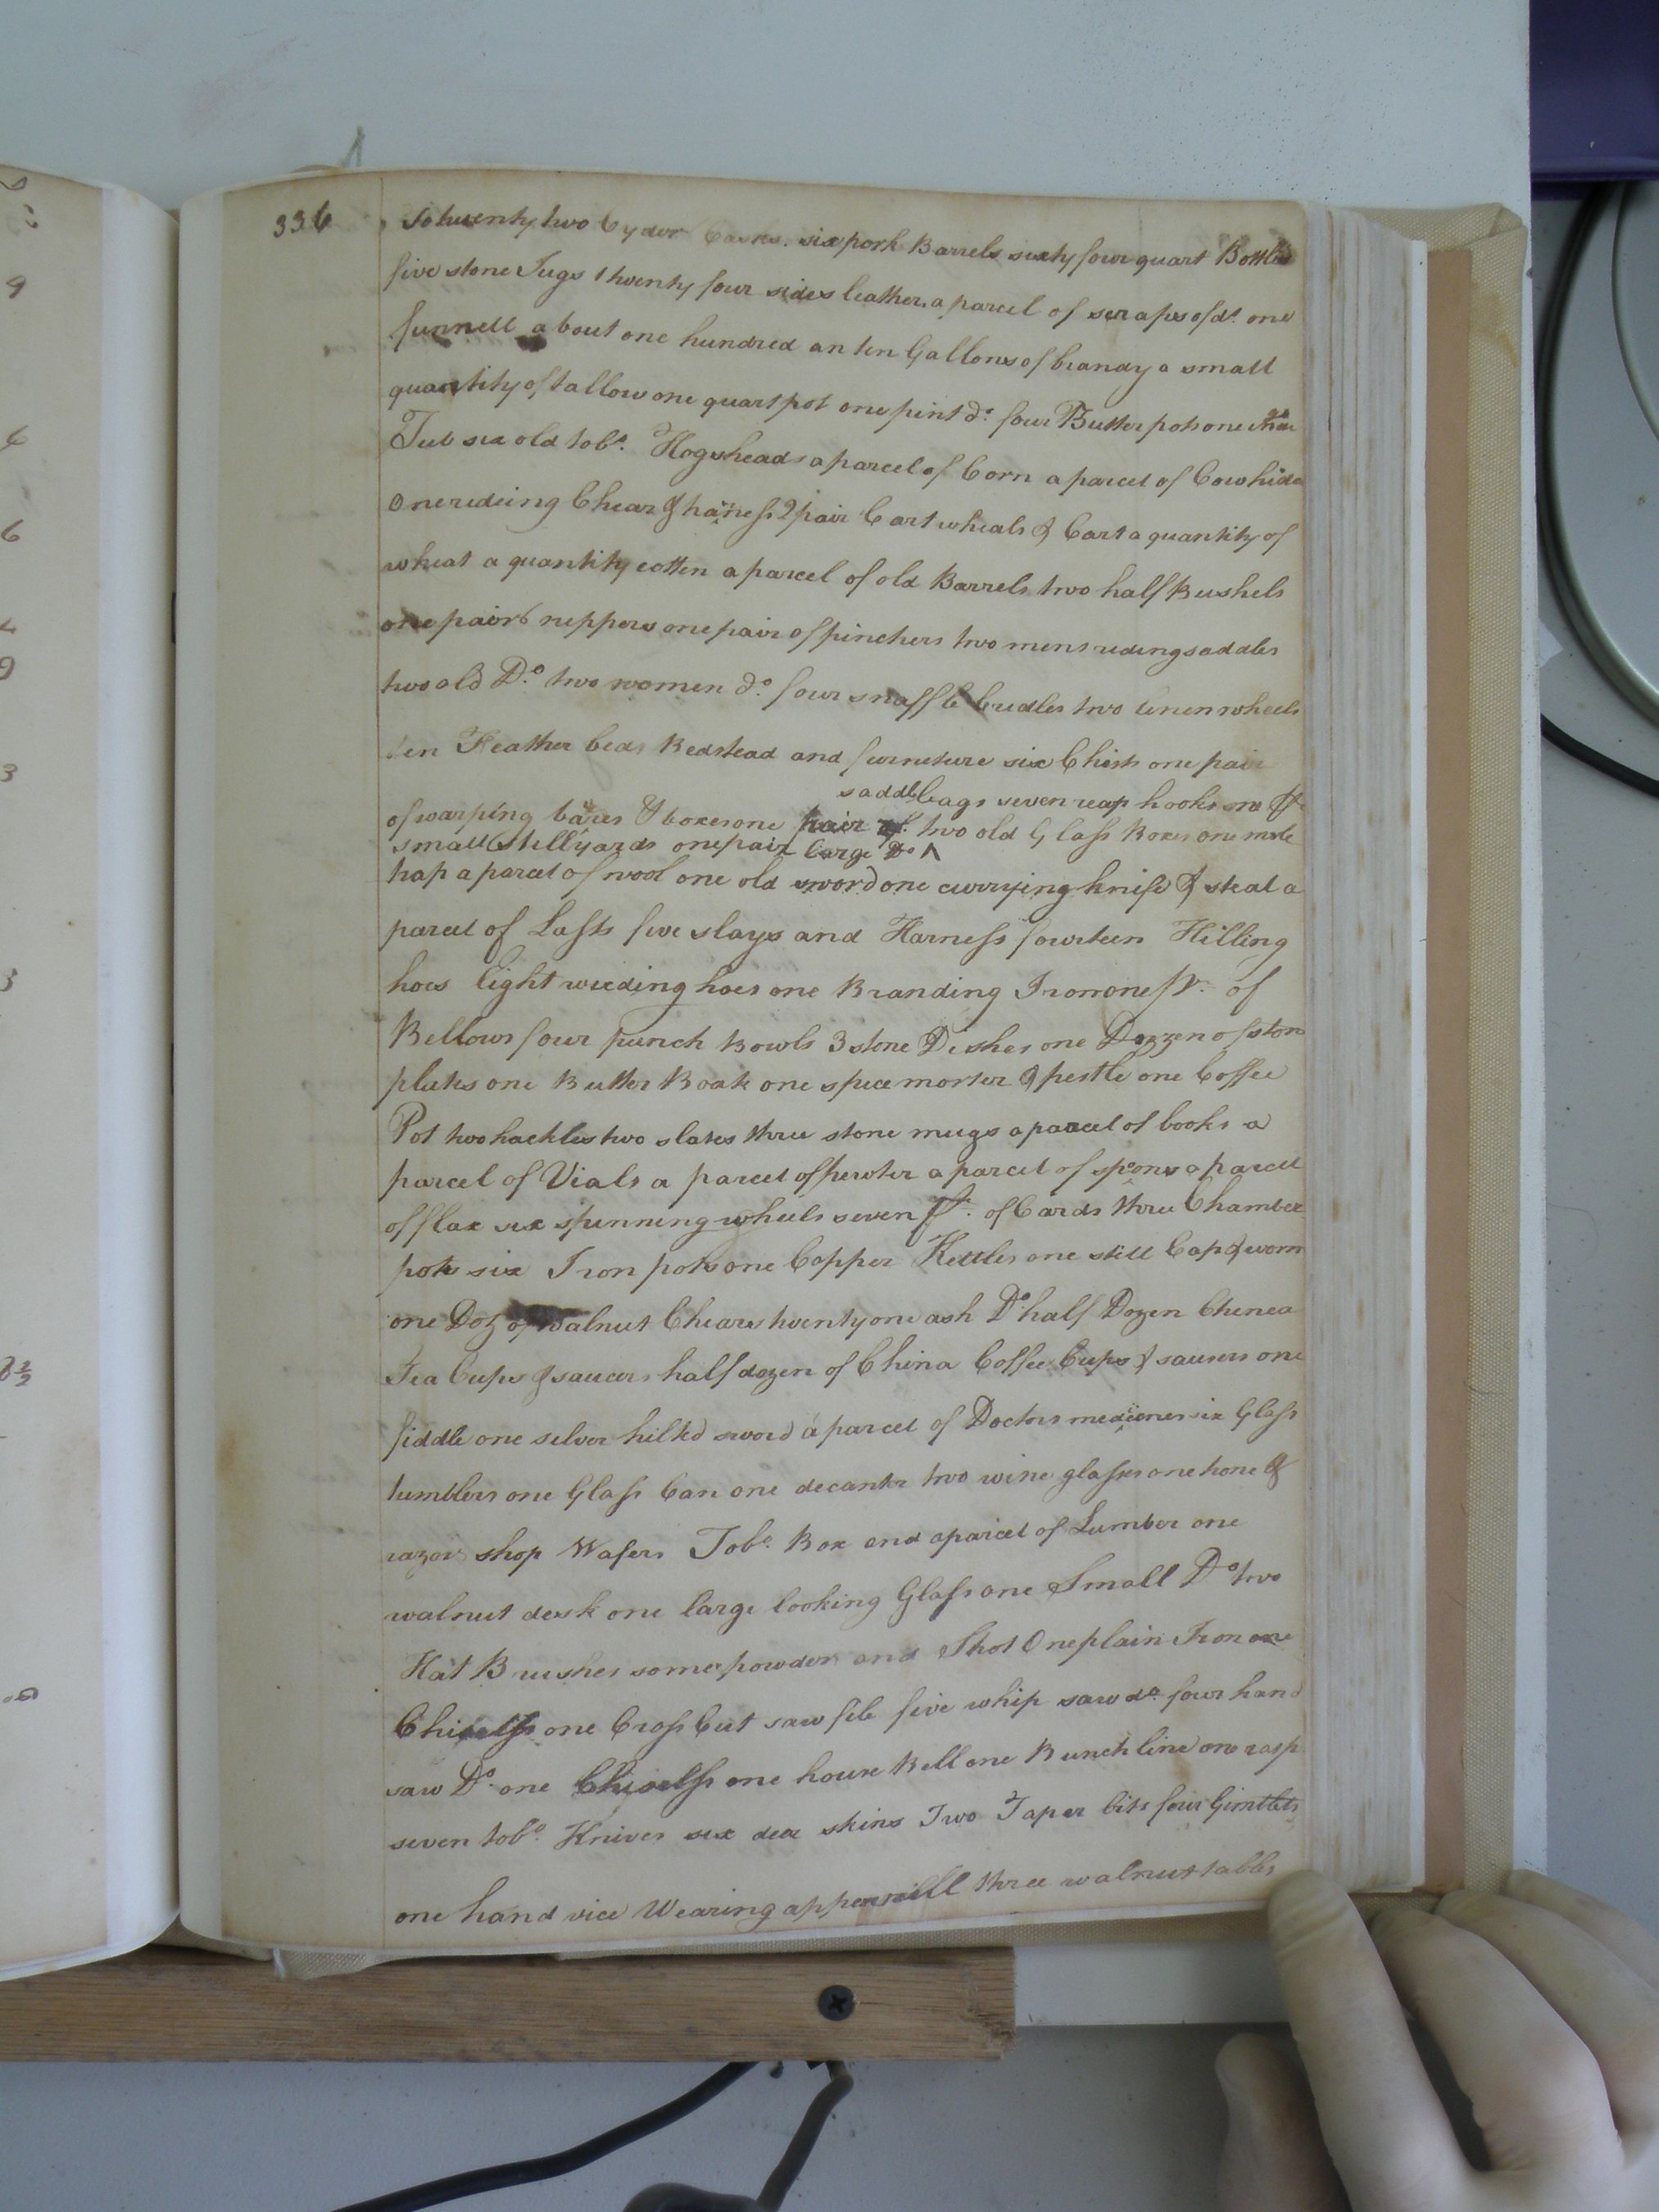 336
So twenty two Cyder Casks. six pork Barrels sixty four quart Bottles
five stone Jugs twenty four sides leather, a parcel of scraps of do. one
funnell about one hundred an ten Gallons of brandy a small
quantity of tallow one quart pot one pint do. four Butter pots one
Tub six old tobo. Hogsheads a parcel of Corn a parcel of Cowhides
One rideing Chear & harness 2 pair Cart wheals & Cart a quantity of
wheat a quantity cotten a parcel of old Barrels two half Bushels
one pair nippers one pair of pinchers two mens rideing saddles
two old Do. two women do. four snaffle bridles two linen wheels
ten Feather beds Bedstead and furniture six Chists one pair
saddlebags seven reap hooks one pr
of warping bares & boxes one pair of two old Glass Boxes one mole
small stillyards one pair large Do ^
trap a parcel of wool one old sword one currying knife & steal a
parcel of Lasts five slays and Harness fourteen Hilling
hoes Eight weeding hoes one Branding Iron one pr. of
Bellows four punch Bowls 3 stone Dishes one Dozzen of ston
plates one Butter Boat one spice morter & pestle one Coffee
Pot two hackles two slates three stone mugs a parcel of books a
parcel of Vials a parcel of pewter a parcel of spoons a parcell
of flax six spinning wheels seven pr. of Cards three Chamber
pots six Iron pots one Copper Kettles one still Cap & worm
one Doz of walnut Chears twenty one ash Do half Dozen Chenea
Tea Cups & saucers half dozen of China Coffee Cups & saucers one
fiddle one silver hilted sword a parcel of Doctors medicines six Glass
tumblers one Glass Can one decanter two wine glasses one hone &
razor shop Wafers Tobo. Box and a parcel of Lumber one
walnut desk one large looking Glass one Small Do two
Hat Brushes some powder and Shot One plain Iron one
Chisells one Cross Cut saw file five whip saw do. four hand
saw Do. one Chisells one house Bell one Bunch line one rasp
seven tobo. Knives six dear skins Two Taper bits four Gimblets
one hand vice Wearing apperrill three walnut tables